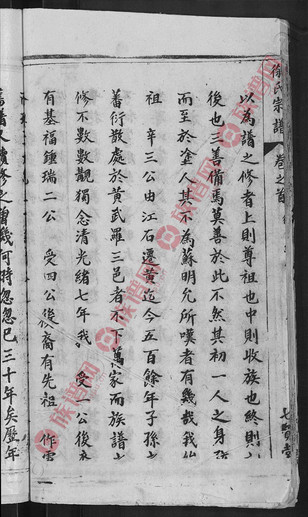 徐氏宗譜 卷之首
七賢堂
以為譜之修者上則尊祖也中則收族也終則
後也三善備焉莫善於此不然其初一人之身
而至於塗人其不為蘇明允所嘆者有幾哉我始
祖 辛三公由江右遷黃迄今五百餘年子孫之
蕃衍散處於黃武羅三邑者不下萬家而族譜之
修不數數觀獨念清光緒七年我 受一公後裔
有基福鍾瑞二公 受四公後裔有先祖 作霖
舊譜又續修之曾幾何時忽忽已三十年矣歷年
族譜網